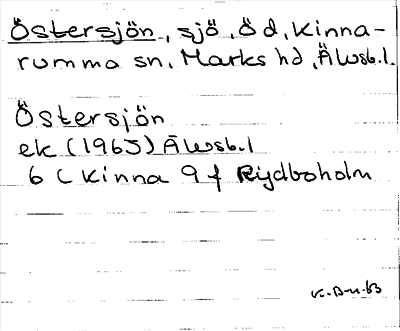 Östersjön, sjö, Öd, Kinna-
rumma sn, Marks hd, Älvsb.l.
Östersjön
ek (1965) Älvsb.l
6 C Kinna 9 f Rydboholm
K.B-n. 63